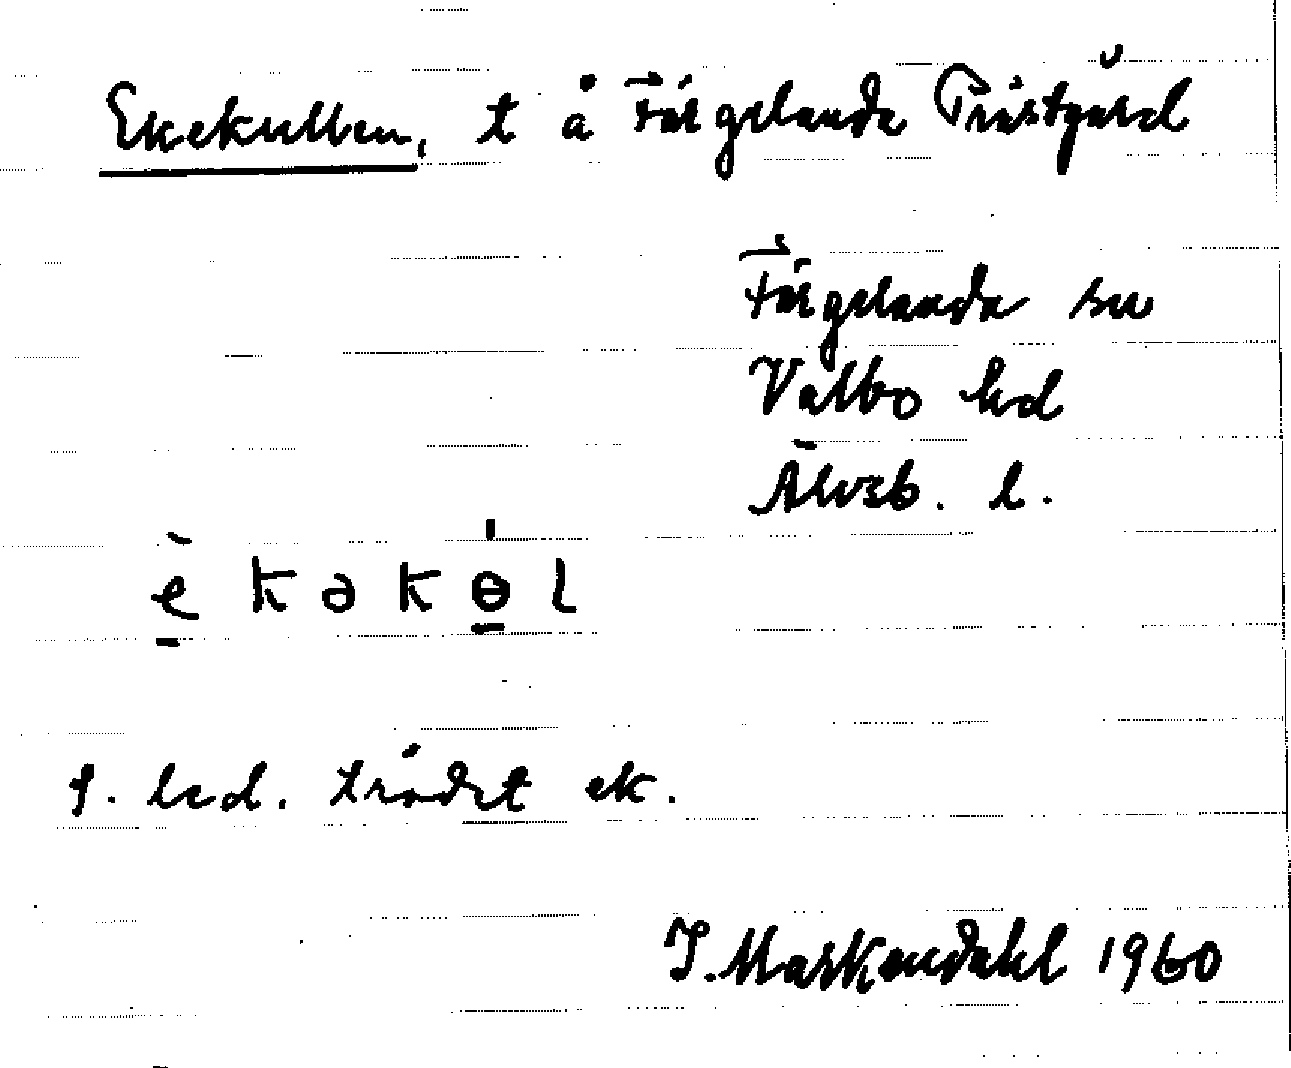 Ekekullen, t å Färgelanda Prästgård
Färgelanda sn
Valbo hd
Älvsb. l.
è̠ k ə k ɵ̠́ l
f. led. trädet ek.
J. Markendahl 1960